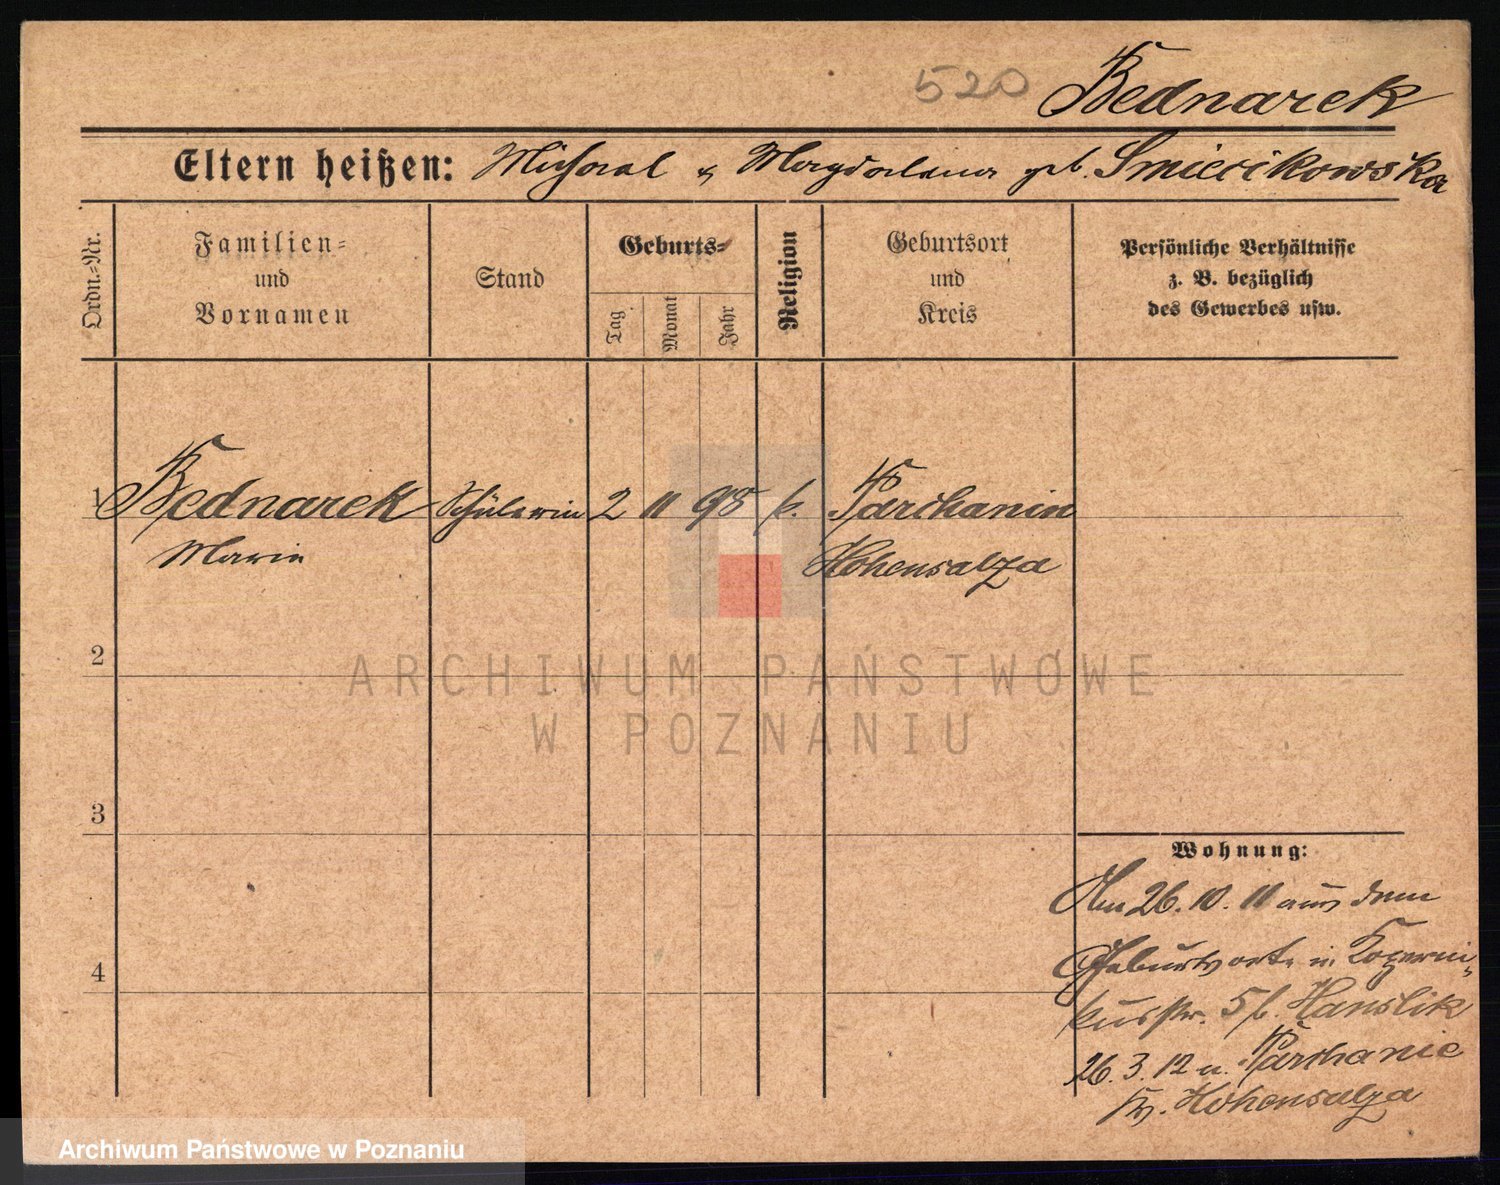 520 Bednarek
Eltern heißen: Michael & Magdalena geb. Smiecikowska
Ordn.=Nr.
Familien=
und
Vornamen
Stand
Geburts=
Tag
Monat
Jahr
Religion
Geburtsort
und
Kreis
Persönliche Verhältnisse
z. B. bezüglich
des Gewerbes usw.
1 Bednarek Schülerin 2 11 98 k. Parchanin
Marie Hohensalza
2
ARCHIWUM PAŃSTWOWE
W POZNANIU
3
Wohnung:
Am 26.10.11 aus dem
Geburtsorte in Koperni-
4
kusstr. 5 b. Hanslik
26.3.12 n. Parchanie
Kr. Hohensalza
Archiwum Państwowe w Poznaniu